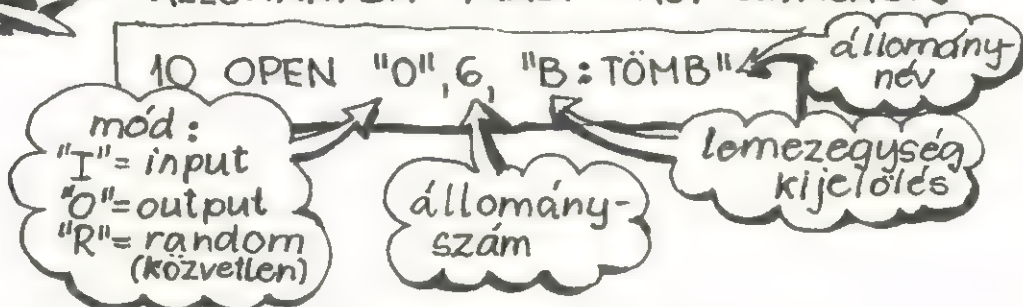 10 OPEN "O",6, "B:TÖMB"
állomány-
név
mód:
"I"= input
"O"= output
"R"= random
(közvetlen)
állomány-
szám
lemezegység
kijelölés